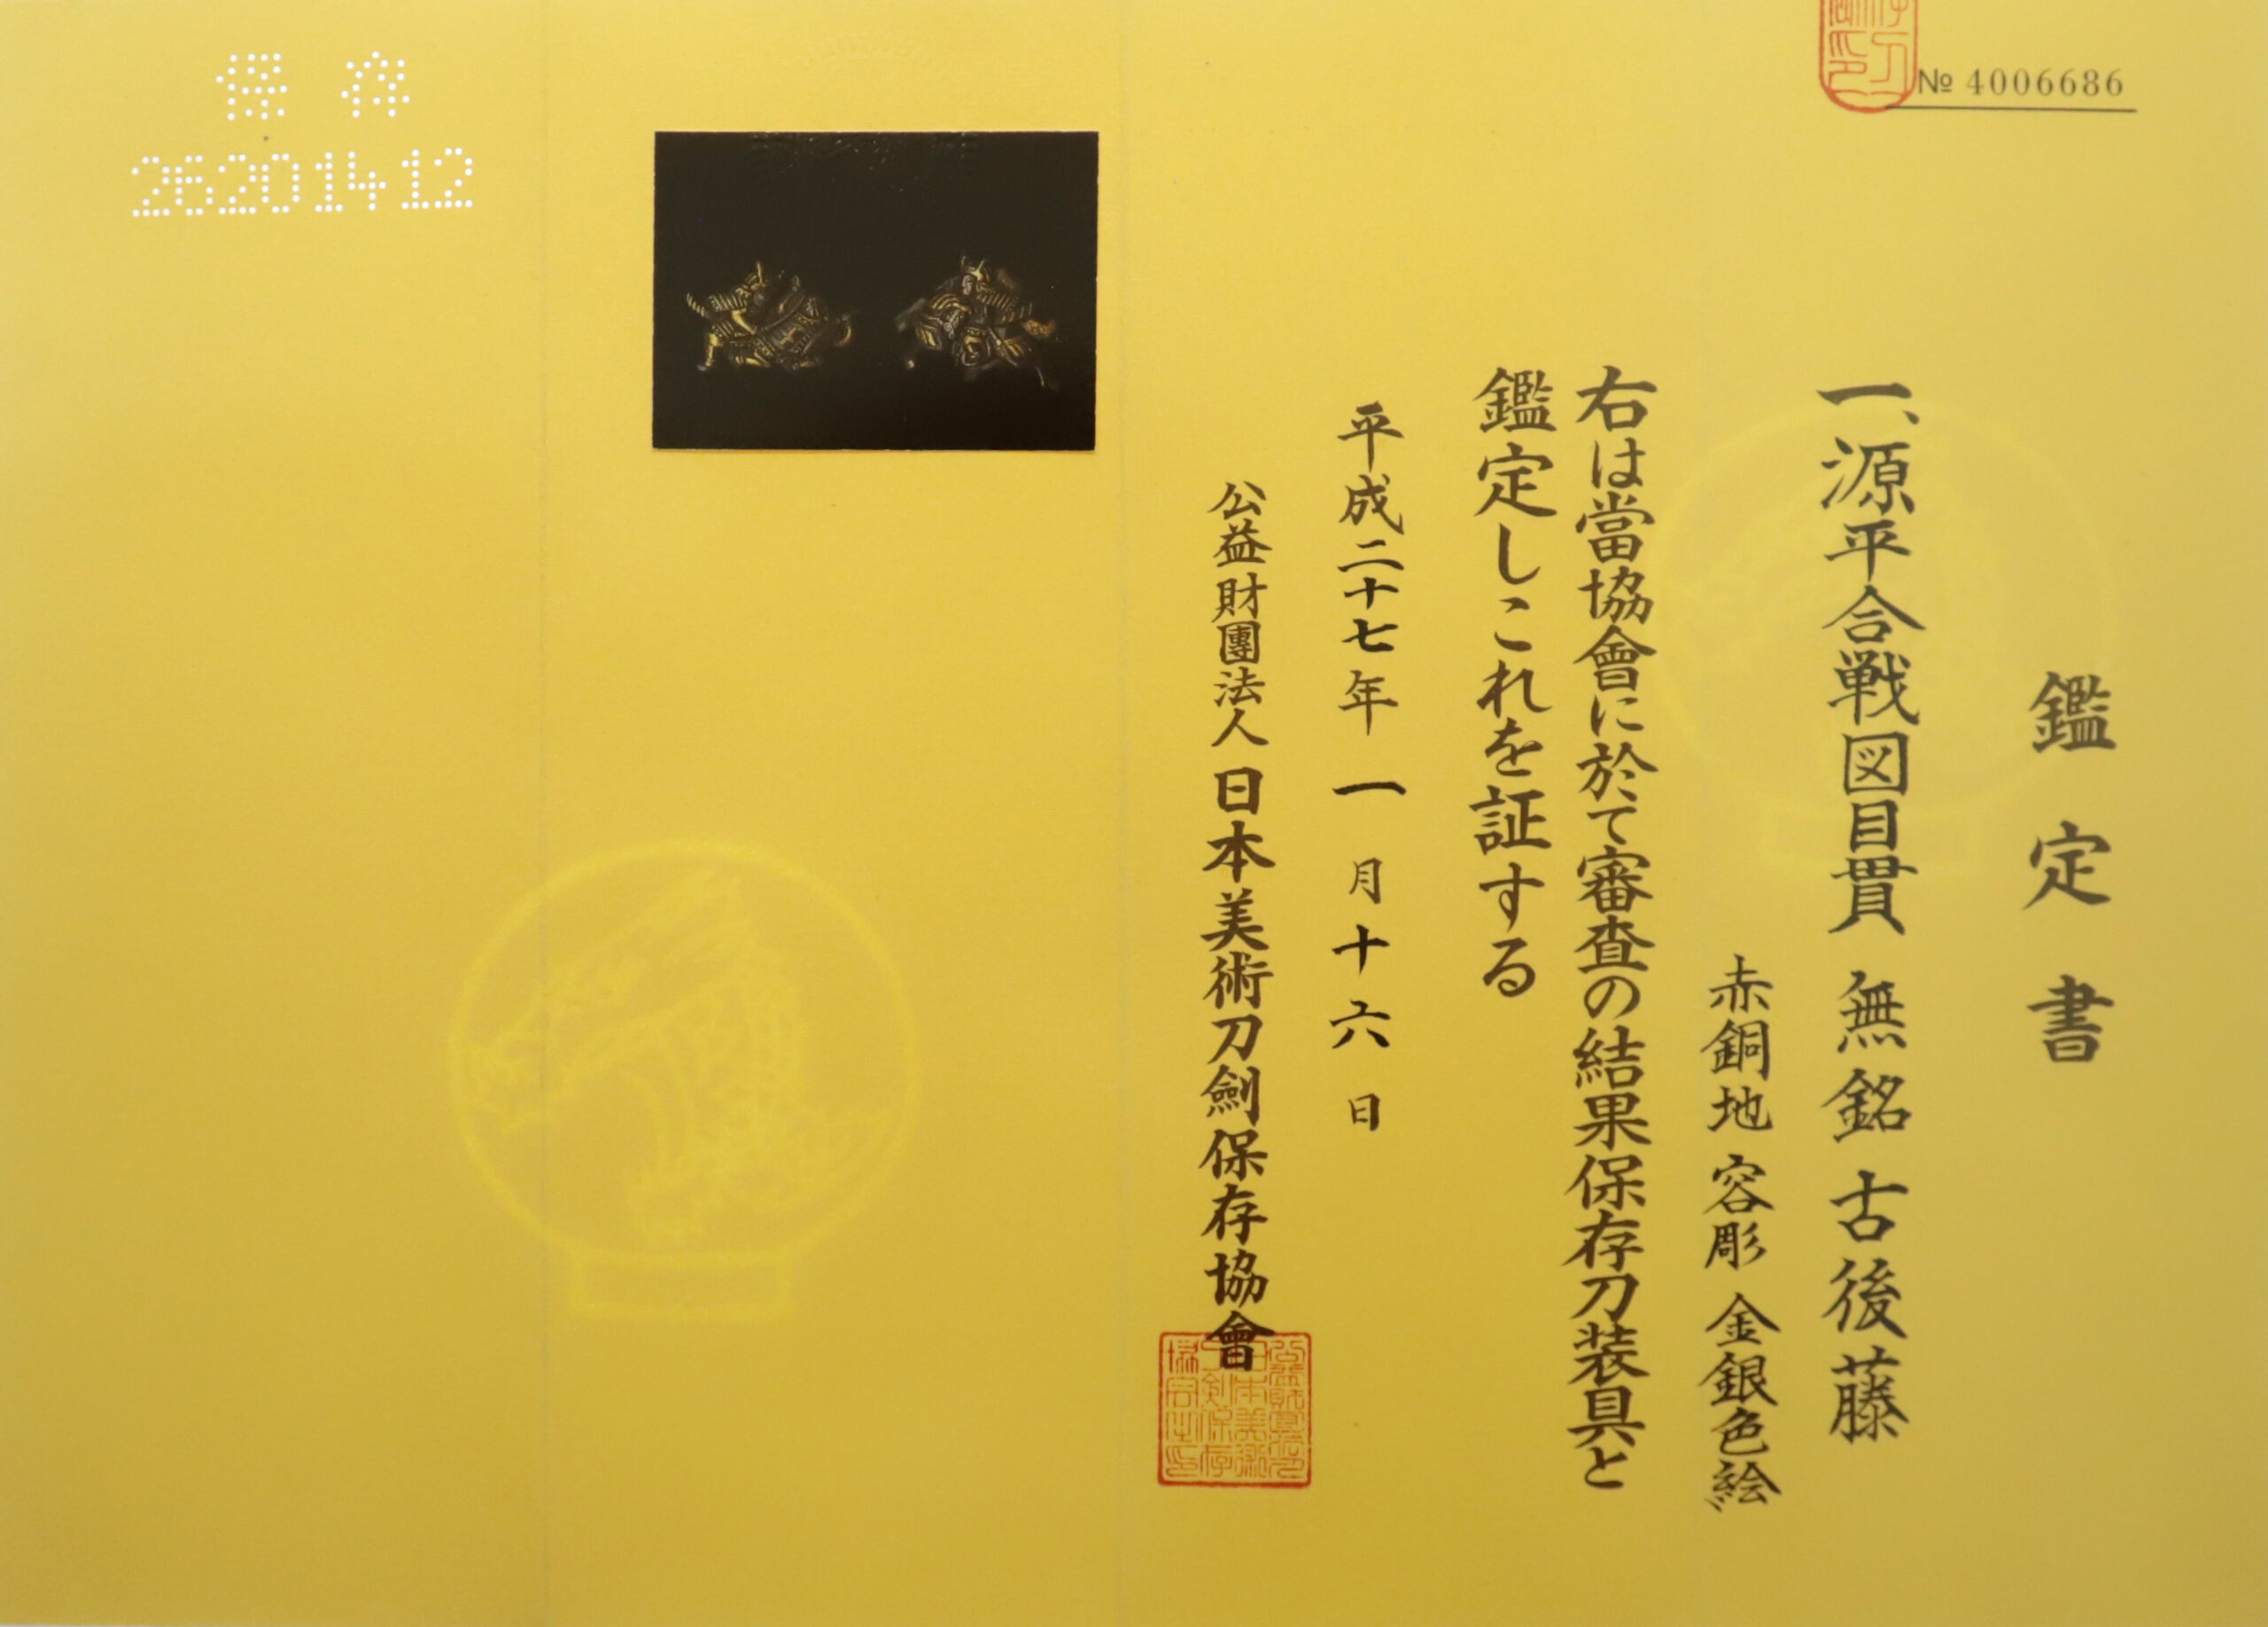 № 4006686
鑑定書
一、源平合戦図目貫 無銘 古後藤
赤銅地 容彫 金銀色絵
右は當協會に於て審査の結果保存刀装具と
鑑定しこれを証する
平成二十七年一月十六日
公益財團法人日本美術刀劍保存協會
保存
26201412